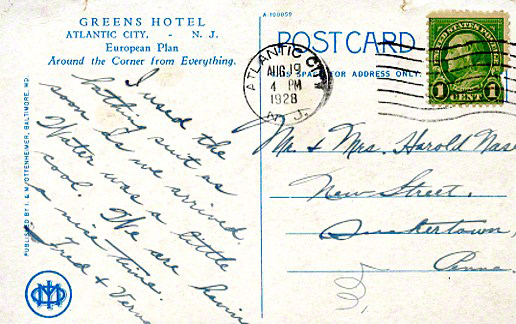 GREENS HOTEL
ATLANTIC CITY. - N. J.
European Plan
Around the Corner from Everything.
I used the
bathing suit as
soon as we arrived.
Water was a little
cool. We are havin
a nice time.
Fred & Verna
PUBLISHED BY I. & M. OTTENHEIMER, BALTIMORE, MD.
A-100059
POSTCARD
THIS SPACE FOR ADDRESS ONLY.
ATLANTIC CITY
AUG 19
4 PM
1928
N. J.
UNITED STATES POSTAGE
1 CENT 1
Mr. & Mrs. Harold Nase
New Street.
Quakertown,
Penna.